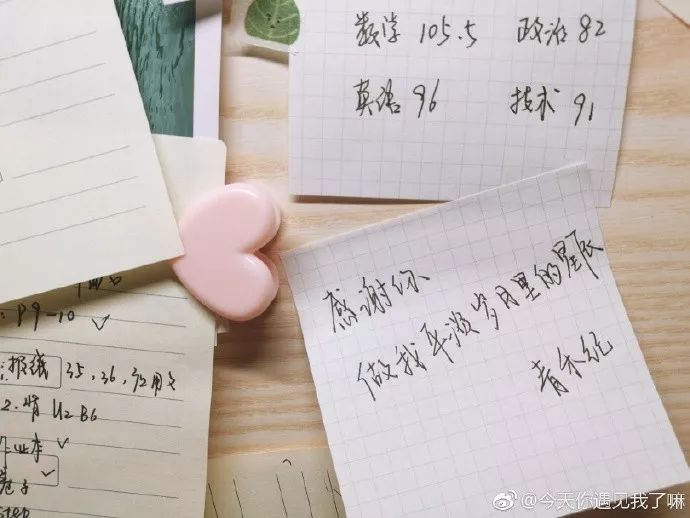 数学 105.5 政治 82
英语 96 技术 91
感谢你
做我平淡岁月里的星辰
: P9-10 ✓
:报纸 35, 36, 应用文
2. 背 U2 B6
作业本 ✓
卷子 ✓
@今天你遇见我了嘛